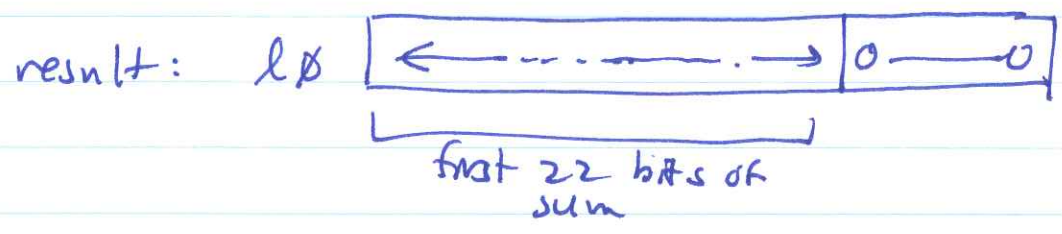 result: l0 0 0
first 22 bits of
sum